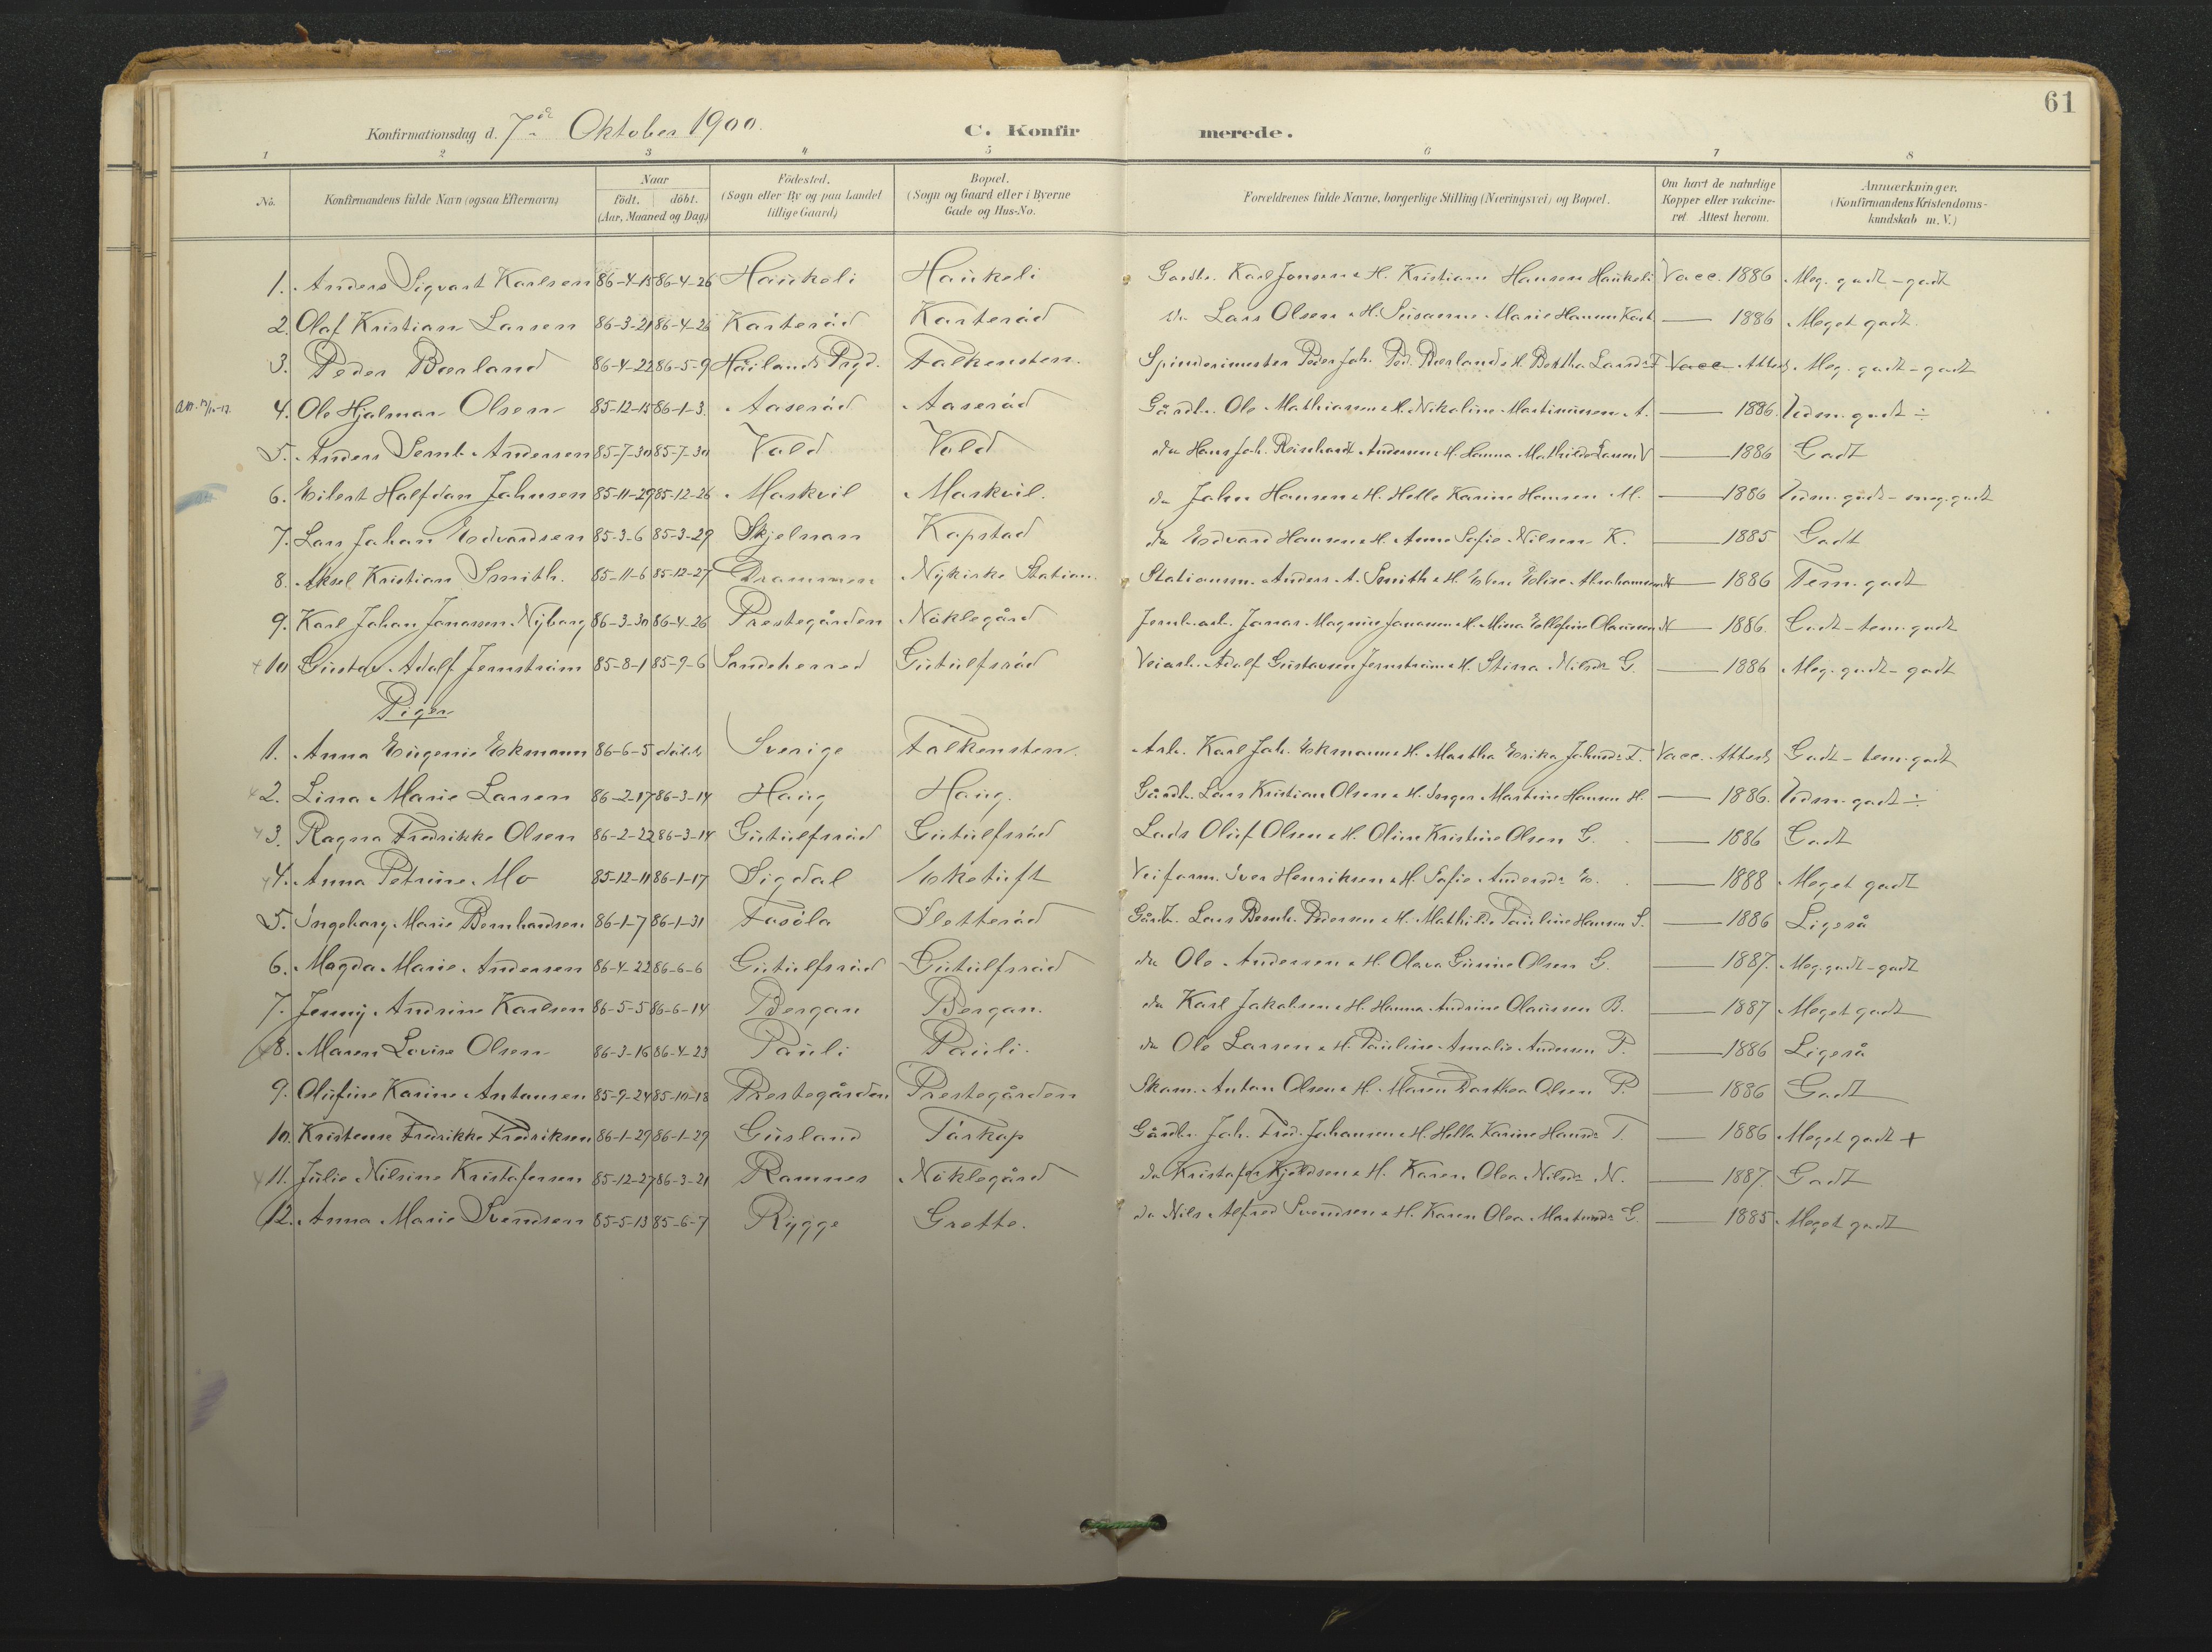 61
Konfirmationsdag d. 7de Oktober 1900. C. Konfir merede.
1 2 3 4 5 6 7 8
No. Konfirmandens fulde Navn (ogsaa Efternavn) Naar födt. döbt. (Aar, Maaned og Dag) Födested. (Sogn eller By og paa Landet tillige Gaard) Bopæl. (Sogn og Gaard eller i Byerne Gade og Hus-No. Forældrenes fulde Navne, borgerlige Stilling (Næringsvei) og Bopæl. Om havt de naturlige Kopper eller vakcineret. Attest herom. Anmærkninger. (Konfirmandens Kristendomskundskab m. V.)
1. Anders Sigvart Karlsen 86-4-15 86-4-26 Haukeli Haukeli Gardbr. Karl Jonsen & H. Kristiane Hansen Haukeli Vacc. 1886 Meg. godt - godt
2. Olaf Kristian Larsen 86-3-21 86-4-26 Karterød Karterød do Lars Olsen & H. Susanne Marie Hansen Kart. — 1886 Meget godt.
3. Peder Bærland 86-4-22 86-5-9 Håilands Prgd. Falkensten. Spinderimester Peder Joh. Ped. Bærland & H. Bertha Larsdr F. Vacc. Attest Meg. godt - godt
4. Ole Hjalmar Olsen 85-12-15 86-1-3. Aaserød Aaserød Gårdbr. Ole Mathiassen & H. Nikoline Martinusen A. — 1886. Udm. godt ÷
5. Anders Semb Andersen 85-7-30 85-7-30 Vold Vold do Hans Joh. Reinhardt Andersen & H. Hanna Mathilde Larsen V — 1886 Godt
6. Eilert Halfdan Johnsen 85-11-29 85-12-26 Maskvil Maskvil. do John Hansen & H. Helle Karine Hansen M. — 1886 Udm. godt - meg. godt
7. Lars Johan Edvardsen 85-3-6 85-3-29 Skjelnan Kopstad do Edvard Hansen & H. Anne Sofie Nilsen K. — 1885 Godt
8. Aksel Kristian Smith. 85-11-6 85-12-27 Drammen Nykirke Station. Stationsm. Anders A. Smith & H. Ebba Elise Abrahamsen N — 1886 Tem. godt
9. Karl Johan Jonassen Nyborg 86-3-30 86-4-26 Prestegården Nøklegård Jernb.arb. Jonas Magnus Jonassen & H. Mina Ellefine Olaussen N — 1886. Godt - tem. godt
10 Gustav Adolf Jernstrøm 85-8-1 85-9-6 Sandeherred Gutulfsrød Veiarb. Adolf Gustavsen Jernstrøm & H. Stina Nilsdr G. — 1886 Meg. godt - godt
Piger
1. Anna Eugenie Ekmann 86-6-5 Sverige Falkensten. Arb. Karl Joh. Ekmann & H. Martha Erika Johnsdr F. Vacc. Attest Godt - tem. godt
2. Lina Marie Larsen 86-2-17 86-3-14 Haug Haug. Gårdbr. Lars Kristian Olsen & H. Inger Martine Hansen H. — 1886. Udm. godt ÷
3. Ragna Fredrikke Olsen 86-2-22 86-3-14 Gutulfsrød Gutulfsrød Lods Oluf Olsen & H. Oline Kristine Olsen G. — 1886 Godt
4. Anna Petrine Mo 85-12-11 86-1-17 Sigdal Eketuft Veiform. Iver Henriksen & H. Sofie Andersdr E. — 1888 Meget godt
5. Ingeborg Marie Bernhardsen 86-1-7 86-1-31 Fosøla Sletterød Gårdbr. Lars Bernh. Pedersen & H. Mathilde Pauline Hansen S. — 1886 Ligeså
6. Magda Marie Andersen 86-4-22 86-6-6 Gutulfsrød Gutulfsrød do Ole Andersen & H. Olava Gurine Olsen G. — 1887. Meg. godt - godt
7. Jenny Andrine Karlsen 86-5-5 86-6-14 Bergan Bergan. do Karl Jakobsen & H. Hanna Andrine Olaussen B. — 1887 Meget godt
8. Maren Lovise Olsen 86-3-16 86-4-23 Pauli Pauli. do Ole Larsen & H. Pauline Amalie Andersen P. — 1886 Ligeså
9. Olufine Karine Antonsen 85-9-24 85-10-18 Prestegården Prestegården Skom. Anton Olsen & H. Maren Dorthea Olsen P. — 1886 Godt
10. Kristense Fredrikke Fredriksen 86-1-29 86-1-29 Gusland Torkop Gårdbr. Joh. Fred. Johansen & H. Hella Karine Hansdr T. — 1886 Meget godt +
11. Julie Nilsine Kristofersen 85-12-27 86-3-21 Ramnes Nøklegård do Kristofer Kjeldsen & H. Karen Olea Nilsdr N. — 1887. Godt
12. Anna Marie Svendsen 85-5-13 85-6-7 Rygge Grette. do Nils Alfred Svendsen & H. Karen Olea Martinsdr G. — 1885 Meget godt